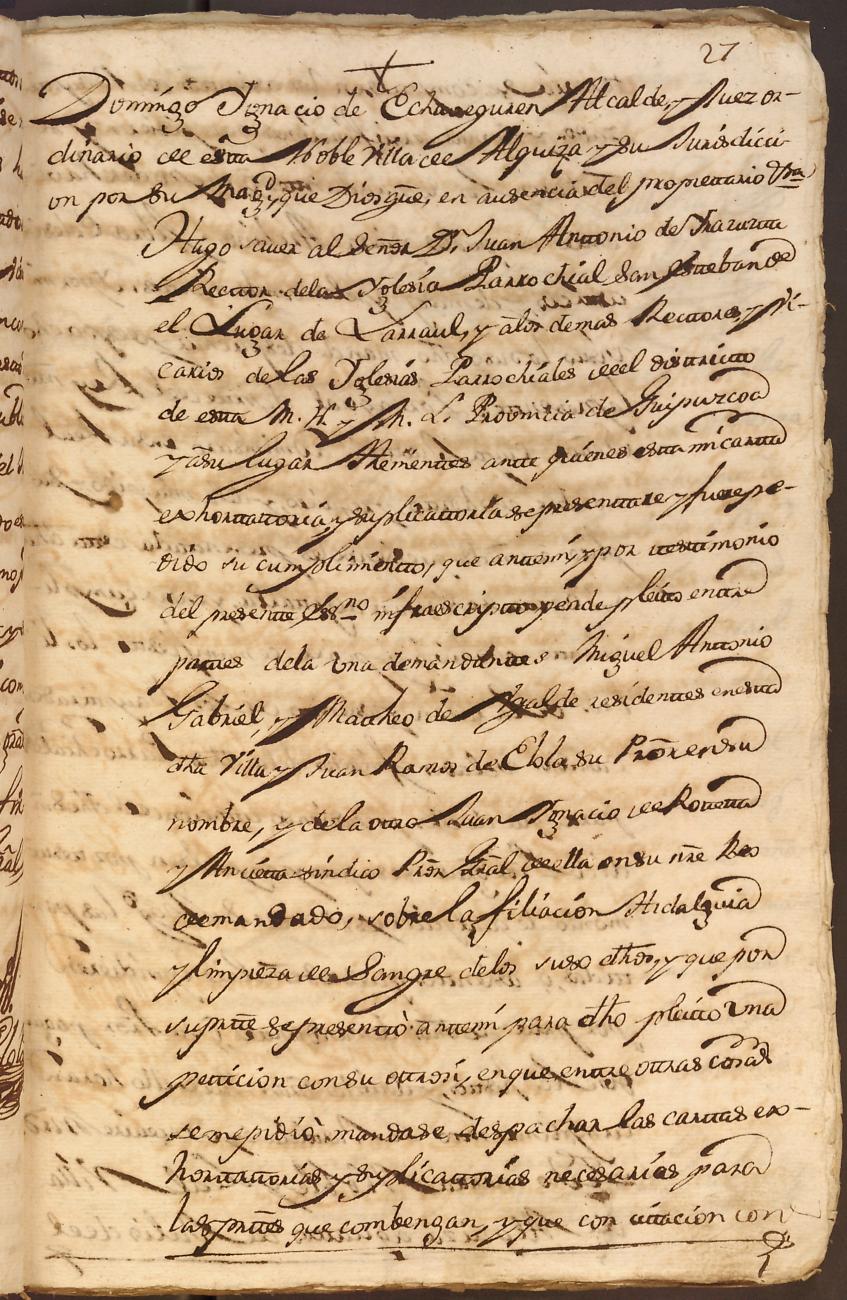 27
Domingo Ignacio de Echaveguren Alcalde, y Juez or-
dinario de esta Noble Villa de Alquiza y su Jurisdicci-
on por su Magd. que Dios gũe, en ausencia del propietario
Hago saver al Señor Dn. Juan Antonio de Yrazuzta
Rector dela Yglesia Parrochial San Esteban de
el Lugar de Larraul, y alos demas Rectores, y Vi-
carios de las Yglesias Parrochiales de el districto
de esta M. N. y M. L. Provincia de Guipuzcoa
y a su lugar thenientes ante quienes esta mi carta
exhortatoria, y suplicatoria se presentare y fuere pe-
dido su cumplimiento, que antemi, y por testimonio
del presente Essno infraescripto pende pleito entre
partes dela una demandantes Miguel Antonio
Gabriel, y Matheo de Ygalde residentes en esta
dha Villa y Juan Ramos de Elola su Prõr en su
nombre, y de la otra Juan Ignacio de Roteta
y Ancieta sindico Prõr Grãl de ella en su nre Reo
demandado, sobre la filiacion Hidalguia
y limpieza de Sangre delos suso dhos, y que por
su pttẽ se presentò antemi para dho pleito una
petticion con su ottrosi, en que entre otras cosas
se me pidiò mandase despachar las cartas ex-
horttattorias y suplicattorias necesarias para
las pttẽs que combengan, y que con citacion con